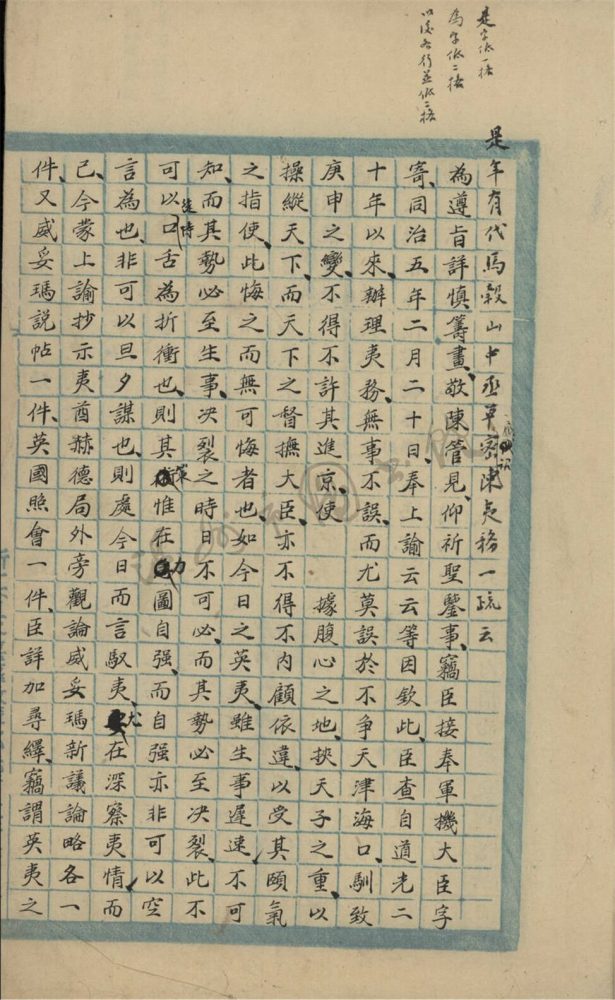 是字低一格
為字低二格
以後各行並低二格
是年有代馬穀山中丞草密陳夷務一疏云
為遵旨詳慎籌畫、敬陳管見、仰祈聖鑒事、竊臣接奉軍機大臣字
寄、同治五年二月二十日、奉上諭云云等因欽此、臣查自道光二
十年以來、辦理夷務、無事不誤、而尤莫誤於不爭天津海口、馴致
庚申之變、不得不許其進京、使據腹心之地、挾天子之重、以
操縱天下、而天下之督撫大臣、亦不得不內顧依違、以受其頤氣
之指使、此悔之而無可悔者也、如今日之英夷、雖生事遲速、不可
知、而其勢必至生事、決裂之時日不可必、而其勢必至決裂、此不
可以徒恃口舌為折衝也、則其策惟在力圖自強、而自強亦非可以空
言為也、非可以旦夕謀也、則處今日而言馭夷、尤在深察夷情而
已、今蒙上諭抄示夷酋赫德局外旁觀論威妥瑪新議論略各一
件、又威妥瑪說帖一件、英國照會一件、臣詳加尋繹、竊謂英夷之